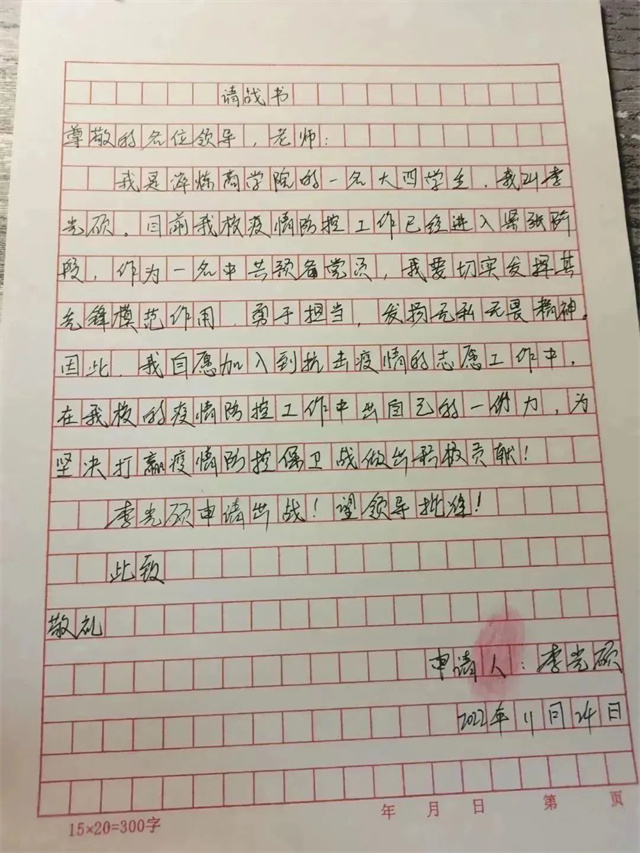 请战书
尊敬的各位领导，老师：
我是淬炼商学院的一名大四学生，我叫李
光硕。目前我校疫情防控工作已经进入紧张阶
段，作为一名中共预备党员，我要切实发挥其
先锋模范作用，勇于担当，发扬无私无畏精神。
因此，我自愿加入到抗击疫情的志愿工作中，
在我校的疫情防控工作中出自己的一份力，为
坚决打赢疫情防控保卫战做出积极贡献！
李光硕申请出战！望领导批准！
此致
敬礼
申请人：李光硕
2022年11月24日
15×20=300字 年 月 日 第 页